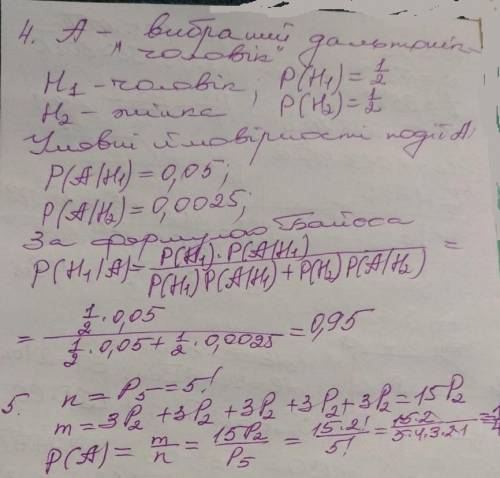 4. А – „вибраний дальтонік-
чоловік"
H₁ – чоловік, P(H₁) = 1/2
H₂ – жінка P(H₂) = 1/2
Умовні ймовірності події А:
P(A/H₁) = 0,05;
P(A/H₂) = 0,0025;
За формулою Байєса
P(H₁/A) = P(H₁)·P(A/H₁) / (P(H₁) P(A/H₁) + P(H₂) P(A/H₂)) =
= (1/2 · 0,05) / (1/2 · 0,05 + 1/2 · 0,0025) = 0,95
5. n = P₅ = 5!
m = 3P₂ + 3P₂ + 3P₂ + 3P₂ + 3P₂ = 15P₂
P(A) = m/n = 15P₂/P₅ = 15·2!/5! = 15·2/5·4·3·2·1 = 1/4